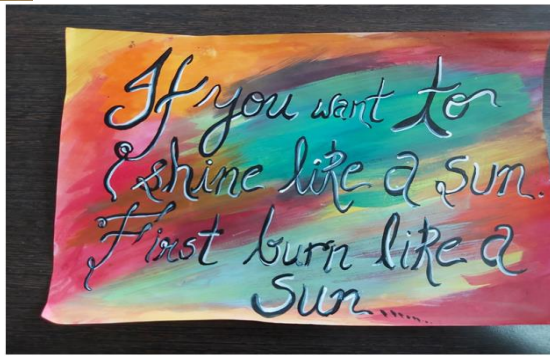 If you want to
shine like a sun.
First burn like a
sun......